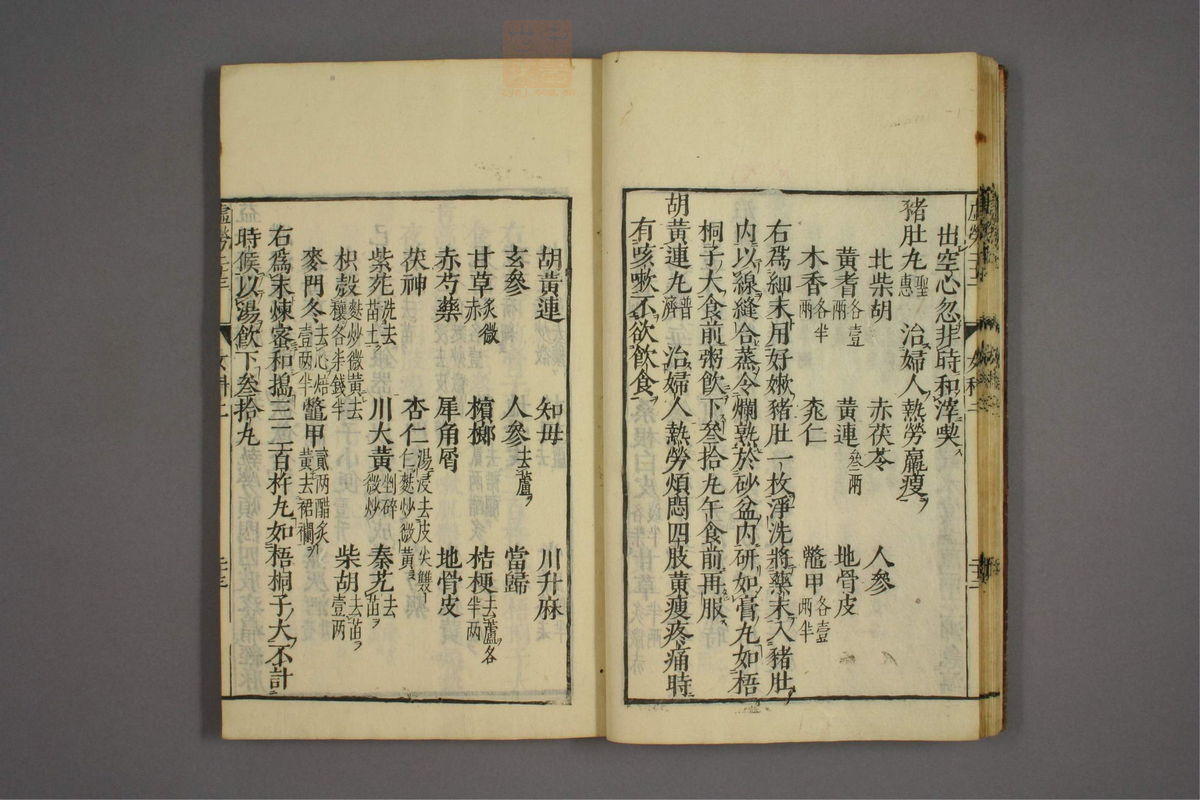 出空心忽非時和滓喫
猪肚丸聖惠　治婦人熱勞羸瘦
北柴胡　赤茯苓　人參
黃耆各壹兩　黃連叁兩　地骨皮
木香各半兩　桃仁　鱉甲各壹兩半
右爲細末用好嫩猪肚一枚淨洗將藥末入豬肚
內以線縫合蒸令爛熟於砂盆內研如膏丸如梧
桐子大食前粥飲下叁拾丸午食前再服
胡黃連丸普濟　治婦人熱勞煩悶四肢黃瘦疼痛時
有咳嗽不欲飲食
胡黃連　知母　川升麻
玄參　人參去蘆　當歸
甘草炙微赤　檳榔　桔梗去蘆各半兩
赤芍藥　犀角屑　地骨皮
茯神　杏仁湯浸去皮尖雙仁麩炒微黃
紫菀洗去苗土　川大黃剉碎微炒　秦艽去苗
枳殼麩炒微黃去穰各半錢半　柴胡去苗壹两
麥門冬去心焙壹两半　鱉甲貳两醋炙黃去裙襴
右爲末煉蜜和搗三二百杵丸如梧桐子大不計
時候以湯飲下叁拾丸